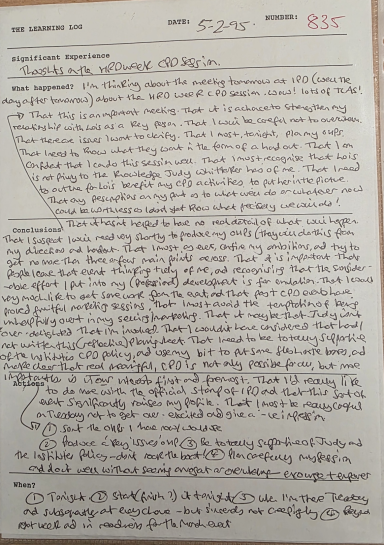 THE LEARNING LOG DATE: 5-2-95. NUMBER: 835
Significant Experience
Thoughts on the HRD week CPD session.
What happened? I'm thinking about the meeting tomorrow at IPD (well the
day after tomorrow) about the HRD week CPD session. Wow! lots of TLAs!
That this is an important meeting. That it is a chance to strengthen my
relationship with Lois as a key person. That I must be careful not to overrun.
That there are issues I want to clarify. That I must, tonight, plan my OHPs.
That I need to know what they want in the form of a handout. That I am
confident that I can do this session well. That I must recognise that Lois
is not privy to the knowledge Judy Whittaker has of me. That I need
to outline for Lois' benefit my CPD activities to put her in the picture.
That any
could be worthless as I don't yet know what precisely we will do!
Conclusions That it hasn't helped to have no real detail of what will happen.
That I suspect I will need very shortly to produce my OHPs (they will do this from
my
get no more than three or four main points across. That it is important that
people leave that event thinking of me, and recognising that the consider-
able effort I put into my (professional) development is for emulation. That I would
very much like to get some work from the event and that past CPD events have
proved fruitful marketing sessions. That I must avoid the temptation of being
unhelpfully overt in my seeing marketing. That it may be that Judy won't
be over-delighted that I'm involved. That I wouldn't have considered that had I
not written this (reflective) planning sheet. That I need to be totally supportive
of the Institute's CPD policy, and use my bit to put some flesh on the bones, and
make clear that real meaningful CPD is not only possible for us, but more
importantly is in YOUR interests first and foremost. That I'd really like
Actions to do more with the official stamp of IPD and that this sort of
event significantly raises my profile. That I must be really careful
on Tuesday not to get over-excited and give a -ve impression
① Sort the OHPs I now would use
② Produce a 'key issues' OHP ③ Be totally supportive of Judy and
the Institute's policy - don't rock the boat! ④ Plan carefully my session
and do it well without seeming arrogant or overbearing
When?
① Tonight ② Start (finish?) it tonight ③ While I'm there Tuesday
and subsequently at every chance - but sincerely not creepingly ④ Beyond
next week and in readiness for the March event